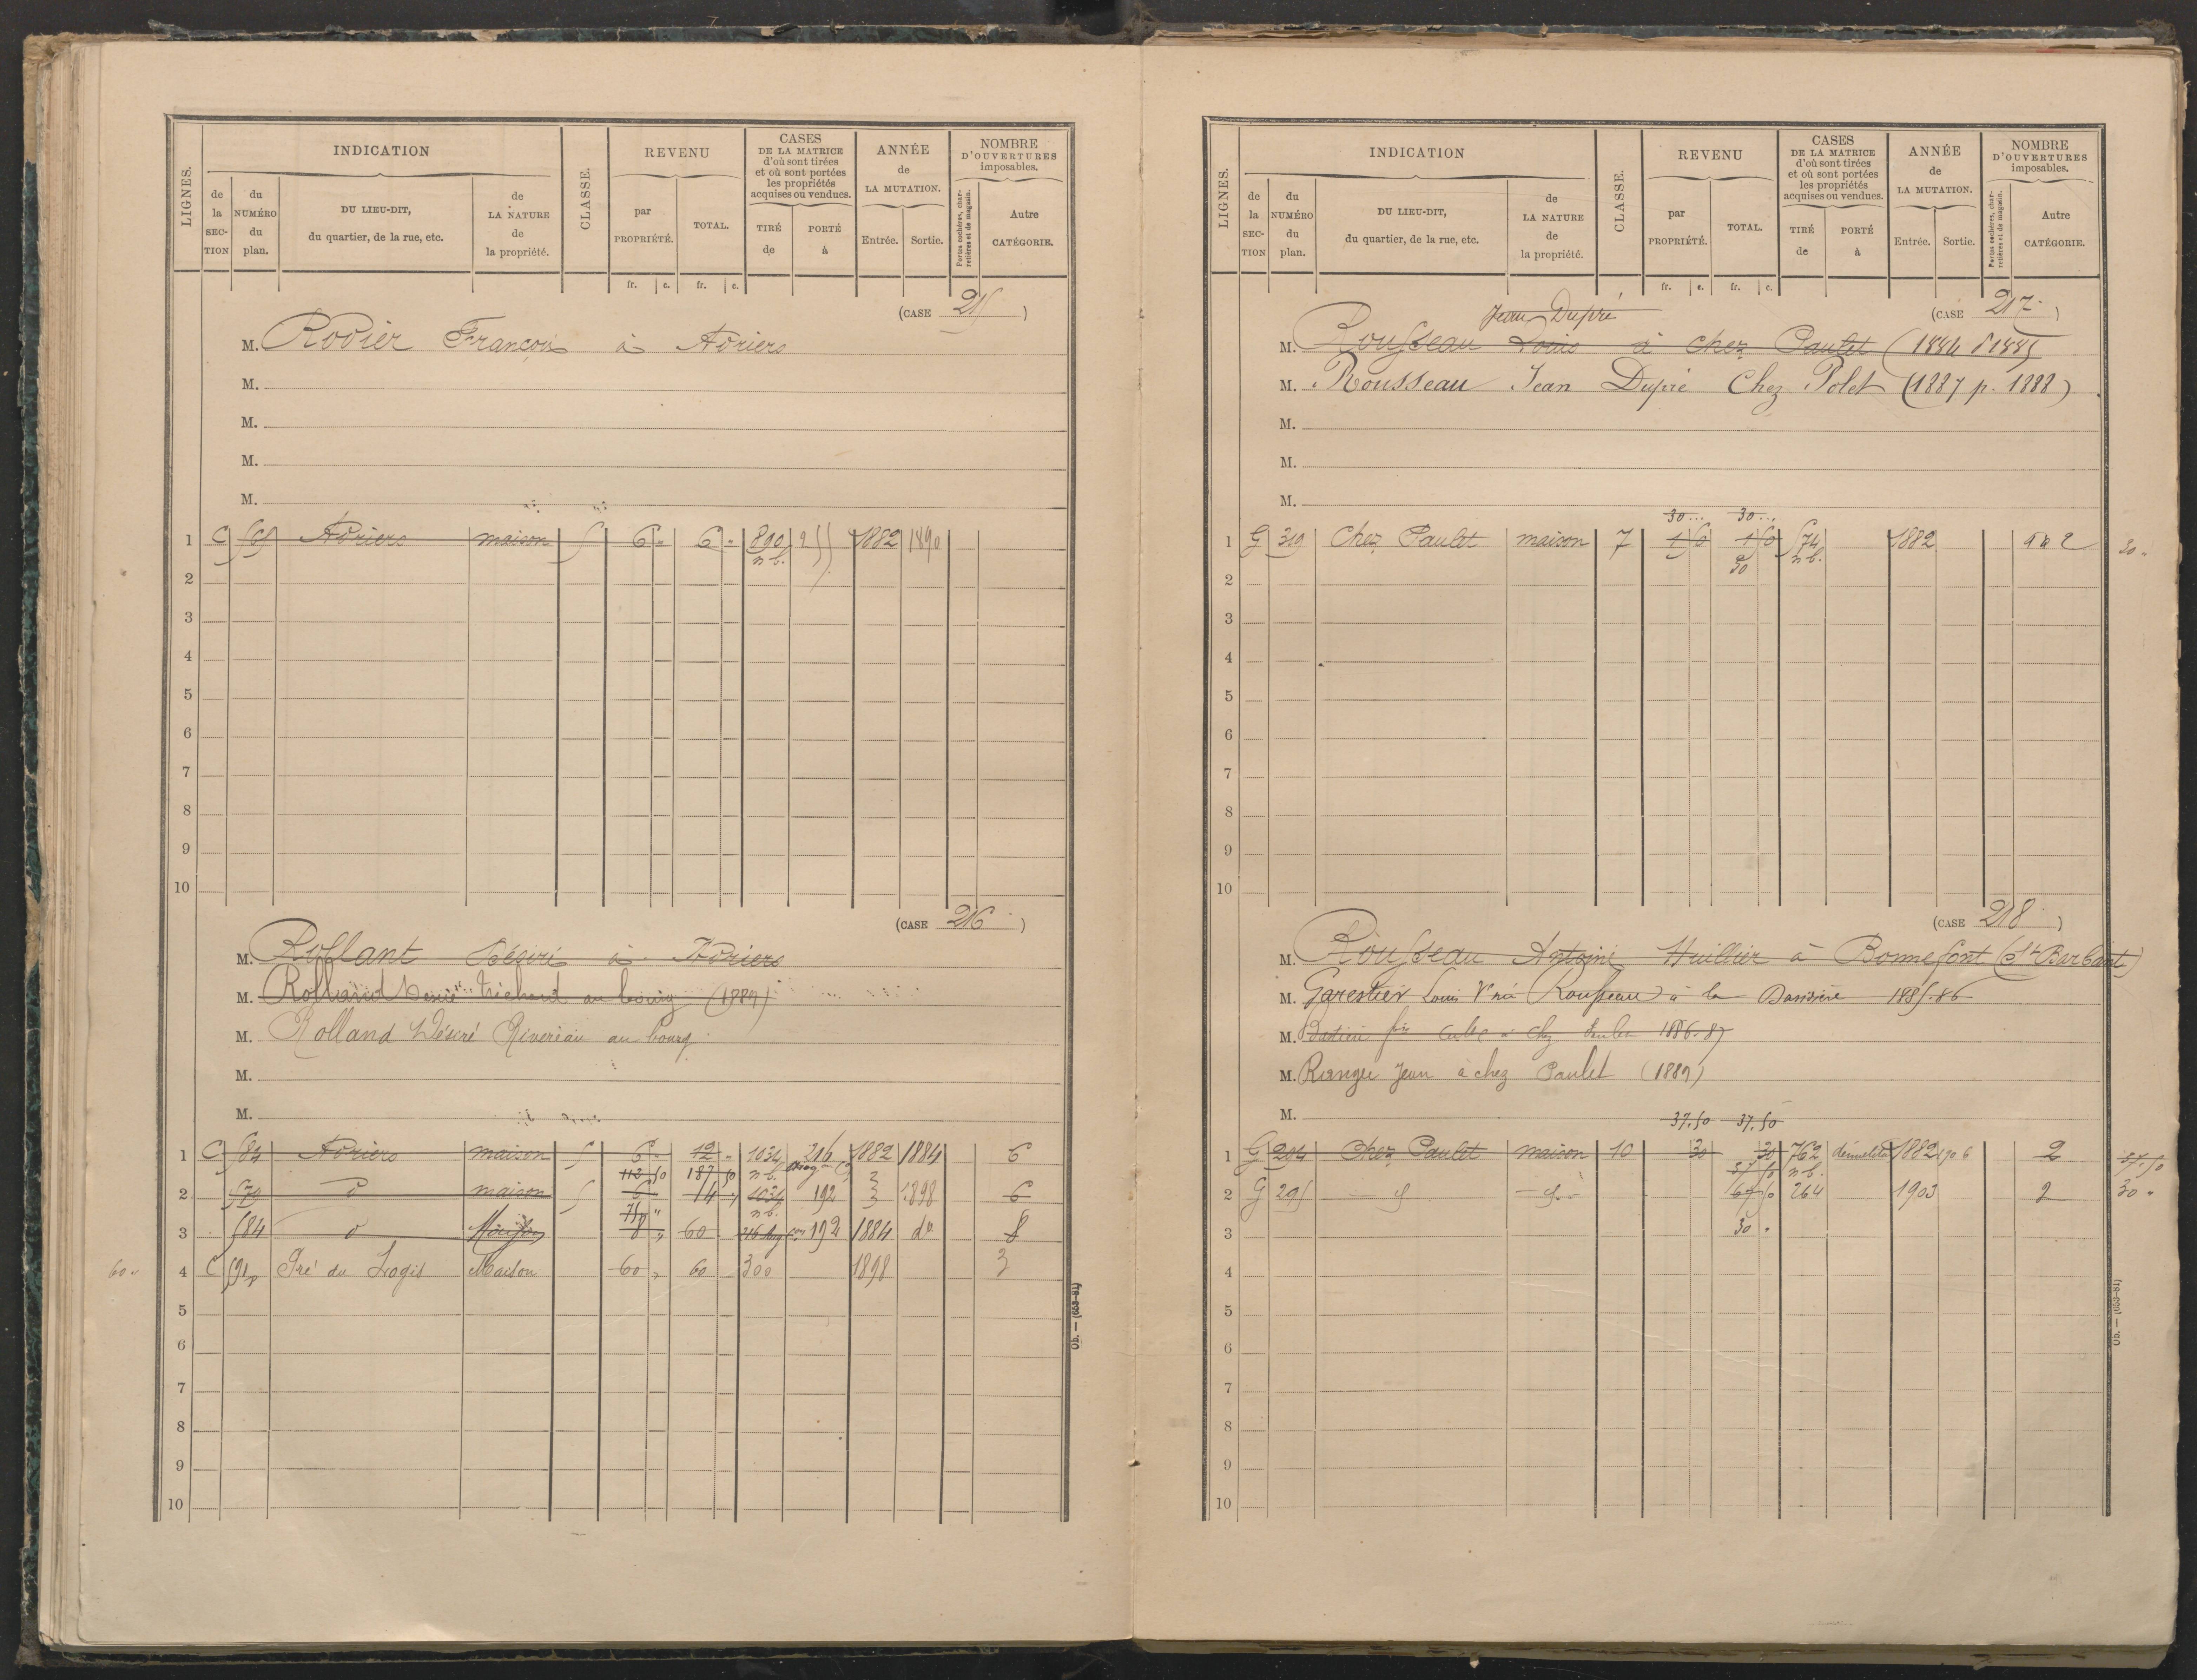 LIGNES.
INDICATION
de la SECTION
du NUMÉRO du plan.
DU LIEU-DIT, du quartier, de la rue, etc.
de LA NATURE de la propriété.
CLASSE.
REVENU
par PROPRIÉTÉ.
TOTAL.
fr. c. fr. c.
CASES DE LA MATRICE d'où sont tirées et où sont portées les propriétés acquises ou vendues.
TIRÉ de
PORTÉ à
ANNÉE de LA MUTATION.
Entrée. Sortie.
NOMBRE D'OUVERTURES imposables.
Portes cochères, charretières et de magasin.
Autre CATÉGORIE.
(CASE 215)
M. Rodier François à Adriers
M.
M.
M.
M.
1 C 565 Adriers maison 5 6 " 6 " 890 n.b. 255 1882 1890
2
3
4
5
6
7
8
9
10
(CASE 216)
M. Rollant Désiré à Adriers
M. Rolland Désiré Trichard au bourg (1889)
M. Rolland Désiré Riveriau au bourg
M.
M.
1 C 582 Adriers maison 5 6 " 12 " 1034 n.b. 216 1882 1884 6
112 50 187 50
2 579 d° maison 5 6 14 " 1034 n.b. 192 3 1898 6
75 "
3 584 d° Maison 8 " 60 216 192 1884 d° 8
60 " 4 C 591p Pré du Logis Maison 60 " 60 300 1898 3
5
6
7
8
9
10
Ob. — (653-81)
LIGNES.
INDICATION
de la SECTION
du NUMÉRO du plan.
DU LIEU-DIT, du quartier, de la rue, etc.
de LA NATURE de la propriété.
CLASSE.
REVENU
par PROPRIÉTÉ.
TOTAL.
fr. c. fr. c.
CASES DE LA MATRICE d'où sont tirées et où sont portées les propriétés acquises ou vendues.
TIRÉ de
PORTÉ à
ANNÉE de LA MUTATION.
Entrée. Sortie.
NOMBRE D'OUVERTURES imposables.
Portes cochères, charretières et de magasin.
Autre CATÉGORIE.
(CASE 217)
Jean Dupré
M. Rousseau Louis à chez Paulet (1884 P 1885)
M. Rousseau Jean Dupré Chez Polet (1887 p. 1888)
M.
M.
M.
30 30
1 G 319 Chez Paulet maison 7 1 50 1 50 574 n.b. 1882 2 30 "
30
2
3
4
5
6
7
8
9
10
(CASE 218)
M. Rousseau Antoine Huillier à Bonnefont (St Barbant)
M. Garestier Louis Vve née Rousseau à la 1885-86
M. chez 1886-87
M. Range Jean à chez Paulet (1889)
M.
37.50 37.50
1 G 294 Chez Paulet maison 10 30 30 762 n.b. démolition 1882 1906 2 37.50
37 50
2 G 295 d° d° 67 50 264 1903 2 30 "
3 30 "
4
5
6
7
8
9
10
Ob. — (653-81)